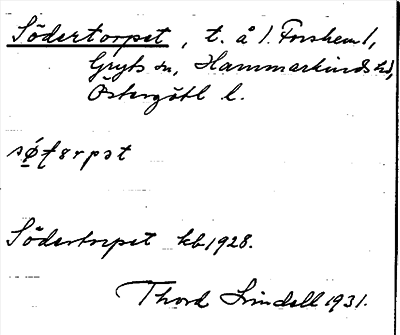 Södertorpet, t. å 1. Forshem 1,
Gryts sn, Hammarkinds hd,
Östergötl l.
Södertorpet kb 1928.
Thord Lindell 1931.